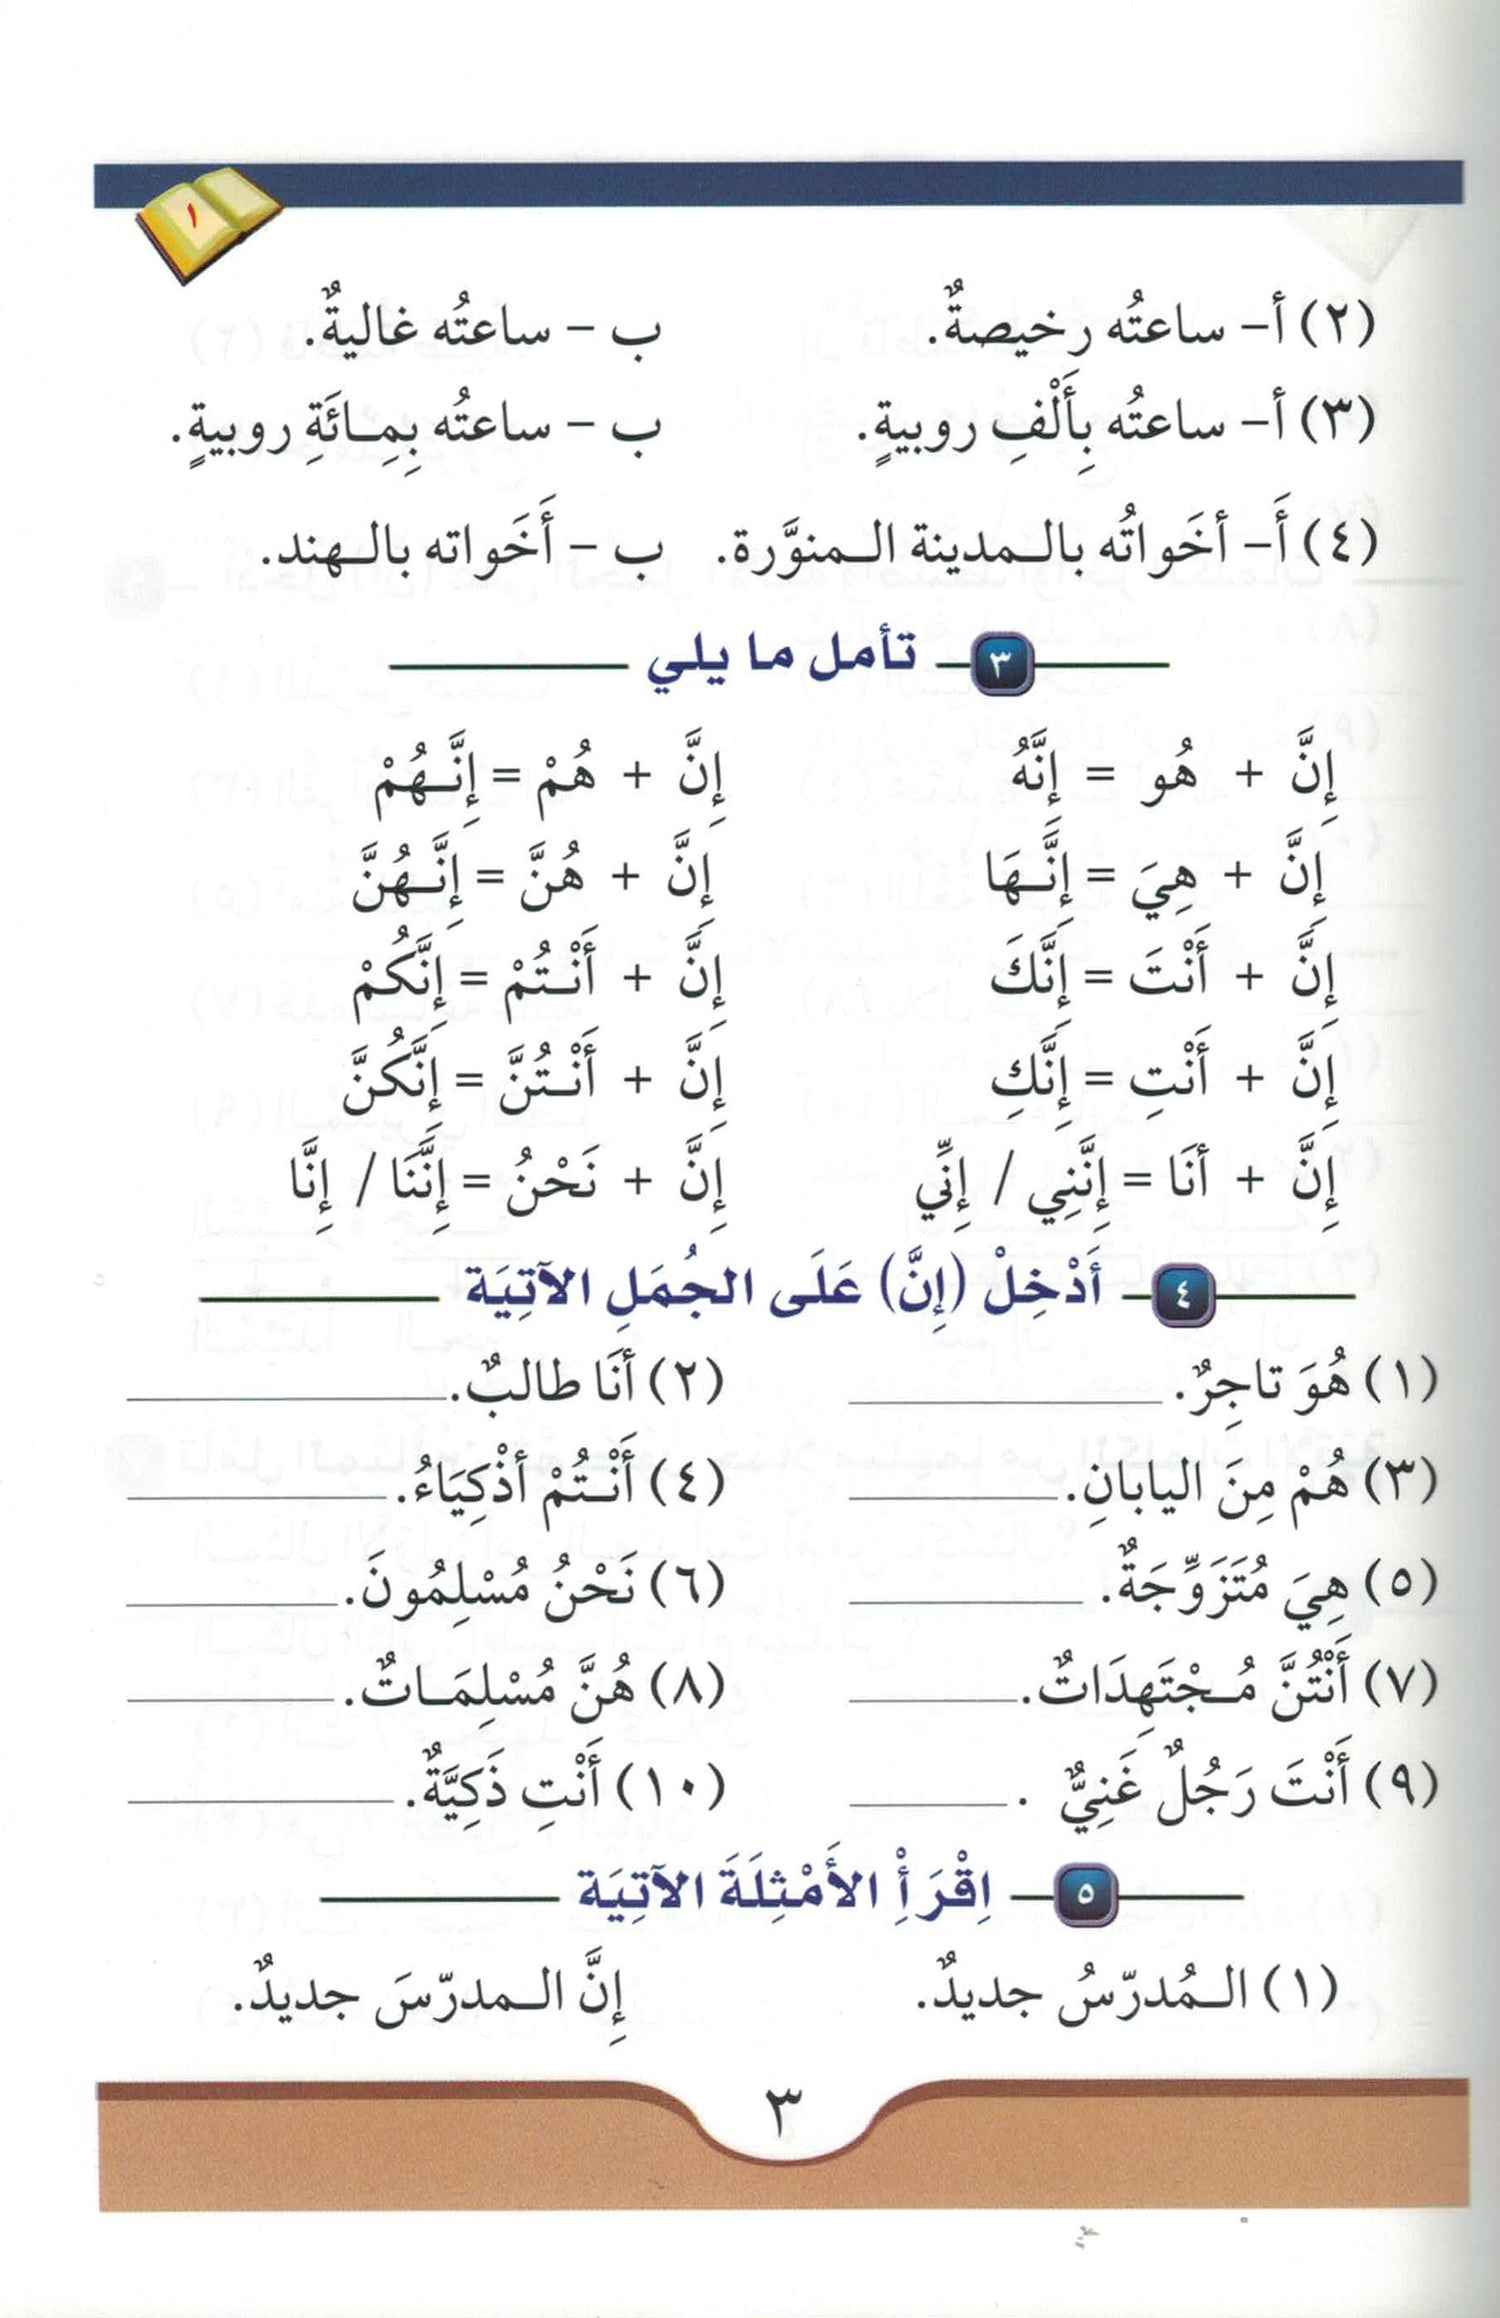 ١
(٢) أ- ساعتُه رخيصةٌ. ب - ساعتُه غاليةٌ.
(٣) أ- ساعتُه بِأَلْفِ روبيةٍ. ب - ساعتُه بِمِـائَةِ روبيةٍ.
(٤) أَ- أخَواتُه بالـمدينة الـمنوَّرة. ب - أَخَواته بالـهند.
٣ تأمل ما يلي
إِنَّ + هُو = إِنَّهُ إِنَّ + هُمْ = إِنَّـهُمْ
إِنَّ + هِيَ = إِنَّـهَا إِنَّ + هُنَّ = إِنَّـهُنَّ
إِنَّ + أَنْتَ = إِنَّكَ إِنَّ + أَنْـتُمْ = إِنَّكُمْ
إِنَّ + أَنْتِ = إِنَّكِ إِنَّ + أَنْـتُنَّ = إِنَّكُنَّ
إِنَّ + أنَا = إِنَّنِي / إِنِّي إِنَّ + نَحْنُ = إِنَّنَا / إِنَّا
٤ أَدْخِلْ (إِنَّ) عَلَى الجُمَلِ الآتِيَة
(١) هُوَ تاجِرٌ. (٢) أنَا طالبٌ.
(٣) هُمْ مِنَ اليابانِ. (٤) أَنْـتُمْ أذْكِيَاءُ.
(٥) هِيَ مُتَزَوِّجَةٌ. (٦) نَحْنُ مُسْلِمُونَ.
(٧) أَنْتُنَّ مُـجْتَهِدَاتٌ. (٨) هُنَّ مُسْلِمَـاتٌ.
(٩) أَنْتَ رَجُلٌ غَنِيٌّ . (١٠) أَنْتِ ذَكِيَّةٌ.
٥ اِقْرَأْ الأَمْثِلَةَ الآتِيَة
(١) الـمُدرّسُ جديدٌ. إِنَّ الـمدرّسَ جديدٌ.
٣